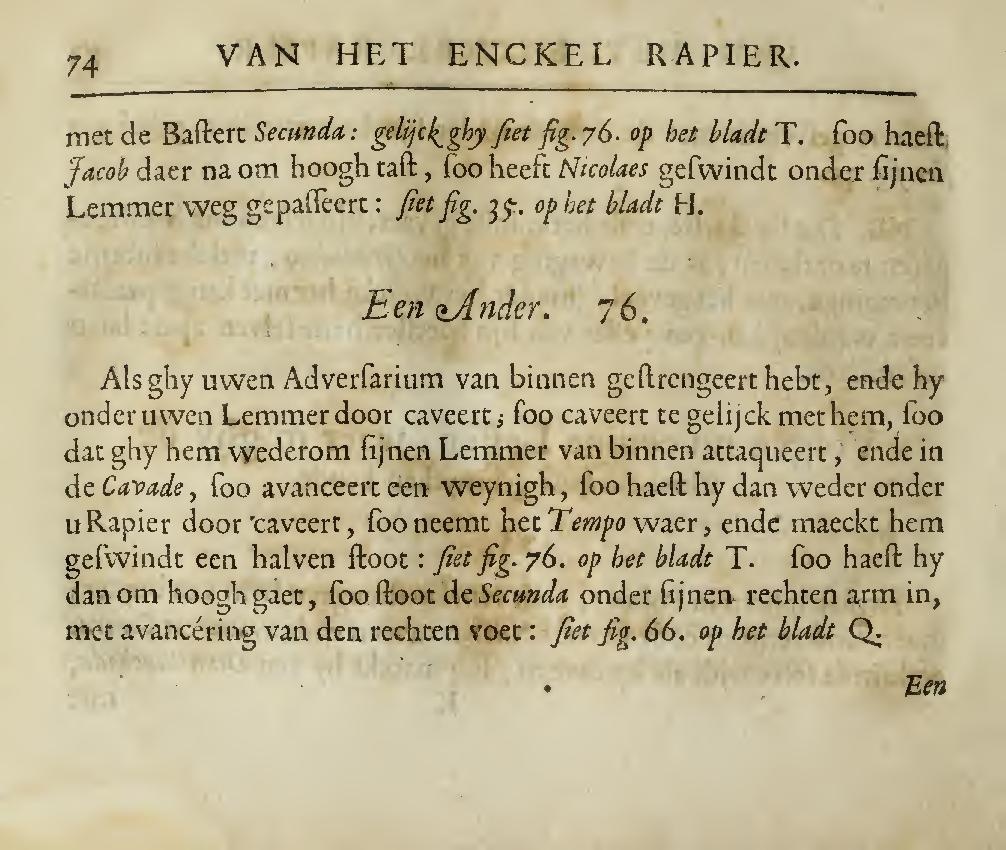 74 VAN HET ENCKEL RAPIER.
met de Baſtert Secunda: gelijck ghy ſiet fig. 76. op het bladt T. ſoo haeſt
Jacob daer na om hoogh taſt, ſoo heeft Nicolaes geſwindt onder ſijnen
Lemmer weg gepaſſeert: ſiet fig. 35. op het bladt H.
Een Ander. 76.
Als ghy uwen Adverſarium van binnen geſtrengeert hebt, ende hy
onder uwen Lemmer door caveert; ſoo caveert te gelijck met hem, ſoo
dat ghy hem wederom ſijnen Lemmer van binnen attaqueert, ende in
de Cavade, ſoo avanceert een weynigh, ſoo haeſt hy dan weder onder
u Rapier door caveert, ſoo neemt het Tempo waer, ende maeckt hem
geſwindt een halven ſtoot: ſiet fig. 76. op het bladt T. ſoo haeſt hy
dan om hoogh gaet, ſoo ſtoot de Secunda onder ſijnen rechten arm in,
met avancéring van den rechten voet: ſiet fig. 66. op het bladt Q.
Een